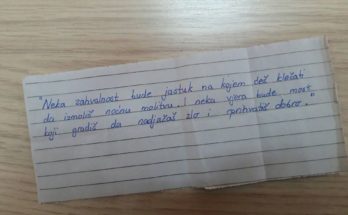 "Neka zahvalnost bude jastuk na kojem ćeš klečati
da izmoliš noćnu molitvu. I neka vjera bude most
koji gradiš da nadjačaš zlo i prihvatiš dobro."